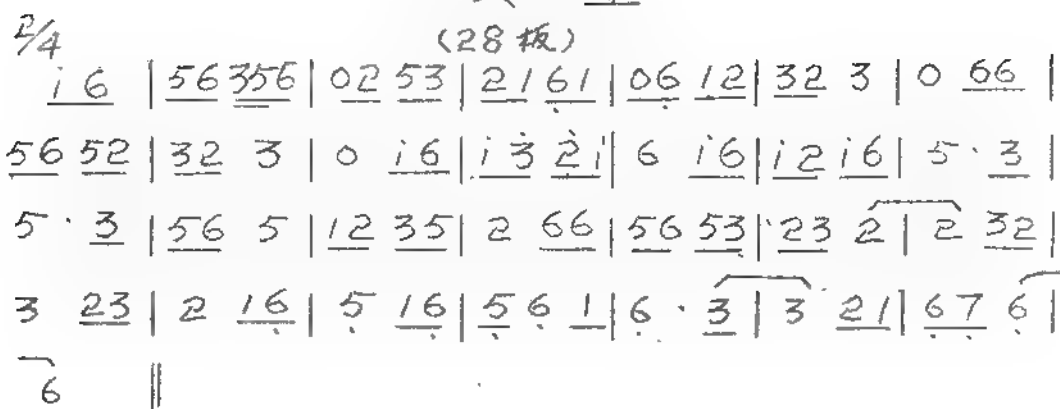 2/4
(28板)
i̇ 6 | 56 356 | 02 53 | 21 6̣1 | 06̣ 12 | 32 3 | 0 66 |
56 52 | 32 3 | 0 i̇6 | i̇3̇ 2̇i̇ | 6 i̇6 | i̇2 i̇6 | 5 · 3 |
5 · 3 | 56 5 | 12 35 | 2 66 | 56 53 | 23 2 | 2 32 |
3 23 | 2 16̣ | 5̣ 16̣ | 5̣ 6̣ 1 | 6̣ · 3 | 3 21 | 6̣7̣ 6̣ |
6 ‖